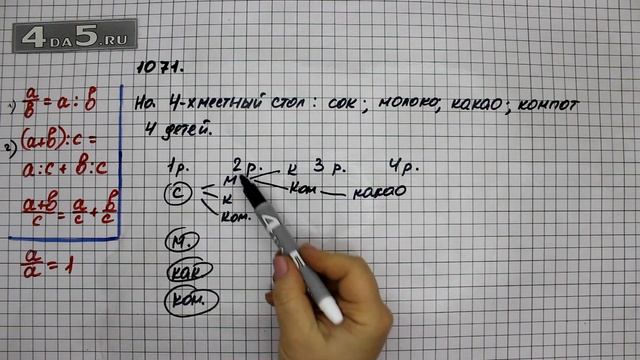 4DA5.RU
1071.
На 4-хместный стол: сок; молоко; какао; компот
4 детей.
1) a/b = a : b
2) (a+b):c =
a:c + b:c
a+b/c = a/c + b/c
a/a = 1
1р. 2р. 3р. 4р.
с м к
к ком какао
ком.
м.
как
ком.